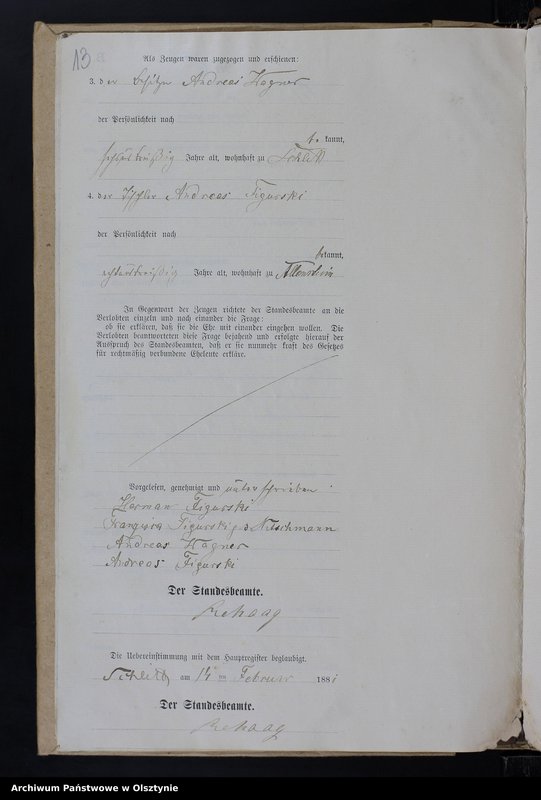 13
Als Zeugen waren zugezogen und erschienen:
3. der Besitzer Andreas Hagner
der Persönlichkeit nach
be kannt,
sechsunddreißig Jahre alt, wohnhaft zu Schlitt
4. der Tischler Andreas Figurski
der Persönlichkeit nach
bekannt,
achtunddreißig Jahre alt, wohnhaft zu Allenstein
In Gegenwart der Zeugen richtete der Standesbeamte an die
Verlobten einzeln und nach einander die Frage:
ob sie erklären, daß sie die Ehe mit einander eingehen wollen. Die
Verlobten beantworteten diese Frage bejahend und erfolgte hierauf der
Ausspruch des Standesbeamten, daß er sie nunmehr kraft des Gesetzes
für rechtmäßig verbundene Eheleute erkläre.
Vorgelesen, genehmigt und unterschrieben
Herman Figurski
Figurski Nitschmann
Andreas Hagner
Andreas Figurski
Der Standesbeamte.
Rehaag
Die Uebereinstimmung mit dem Hauptregister beglaubigt.
Schlitt am 14 ten Februar 1881
Der Standesbeamte.
Rehaag
Archiwum Państwowe w Olsztynie